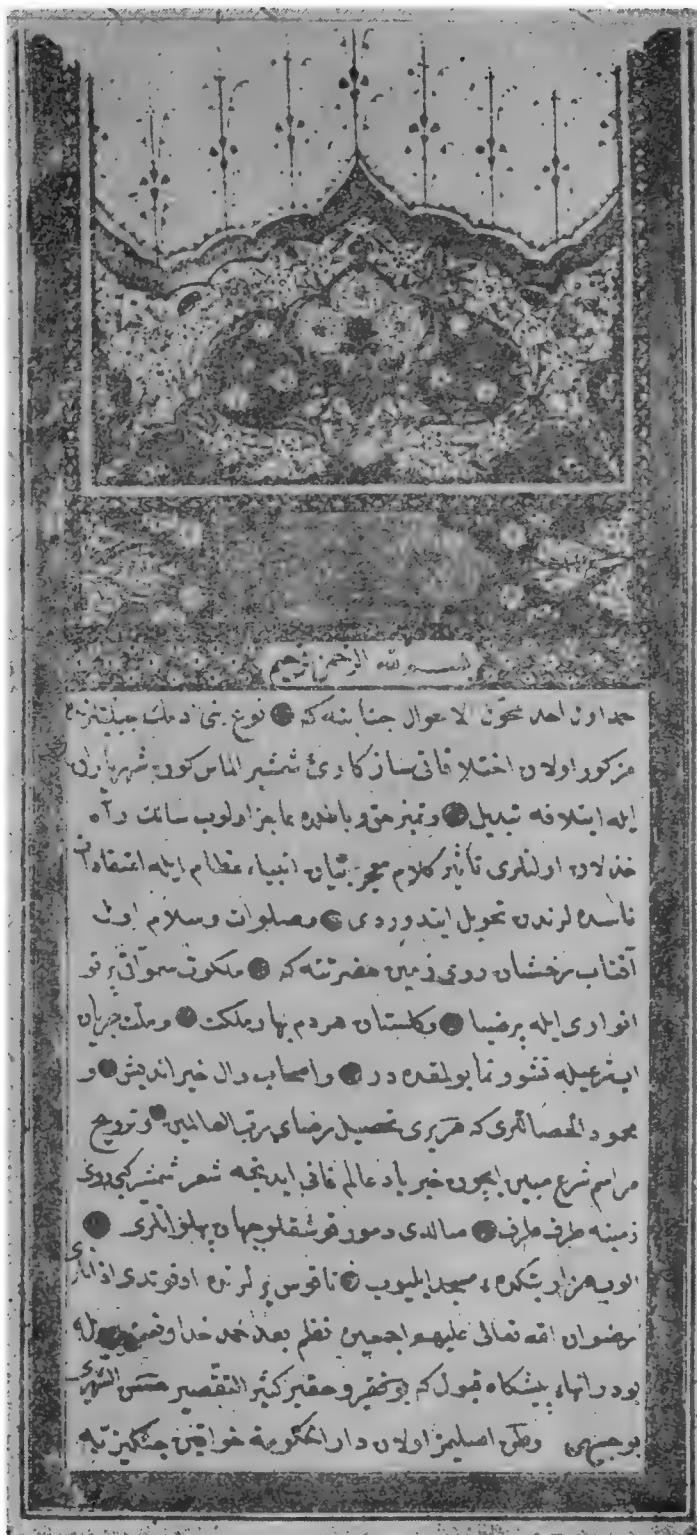 بسم الله الرحمن الرحيم
حمد اول احد محول الاحوال جنابنه كه نوع بنى
مركوز اولان اختلافاتى ساز كارئ شمشير الماس كون شهرياران
ايله ايتلافه تبديل وتميز حق وباطلده عاجز اولوب سالك راه
خذلان اولنلرى تأثير كلام معجز بيان انبياء عظام ايله اعتقادات
فاسده لرندن تحويل ايتدوردى وصلوات وسلام اول
آفتاب رخشان روى زمين حضرتنه كه ملكوت سمواتى پرتو
انوارى ايله پر ضيا وكلستان هردم بهار ملكت وملت
ايله نشو ونما بولمقده در واصحاب وال خير انديش و
محمود الخصاللرى كه هر برى تحصيل رضاى رب العالمين وترويج
مراسم شرع مبين ايچون خير باد عالم فانى ايدنجه شعر شمشير كبى روى
زمينه طرف طرف صالدى دمور قوشقلو جهان پهلوانلرى
الوب هزار بتكده ء مسجد ايليوب ناقوس يرلرنده اوقوتدى اذانلرى
رضوان الله تعالى عليهم اجمعين نظم بعد حمد خدا ونعت رسول
بودر انهاء پيشكاه قبول كم بو فقير وحقير كثير التقصير
بو جيهى وطن اصليمز اولان دار الحكومة خواقين چنكيزيه